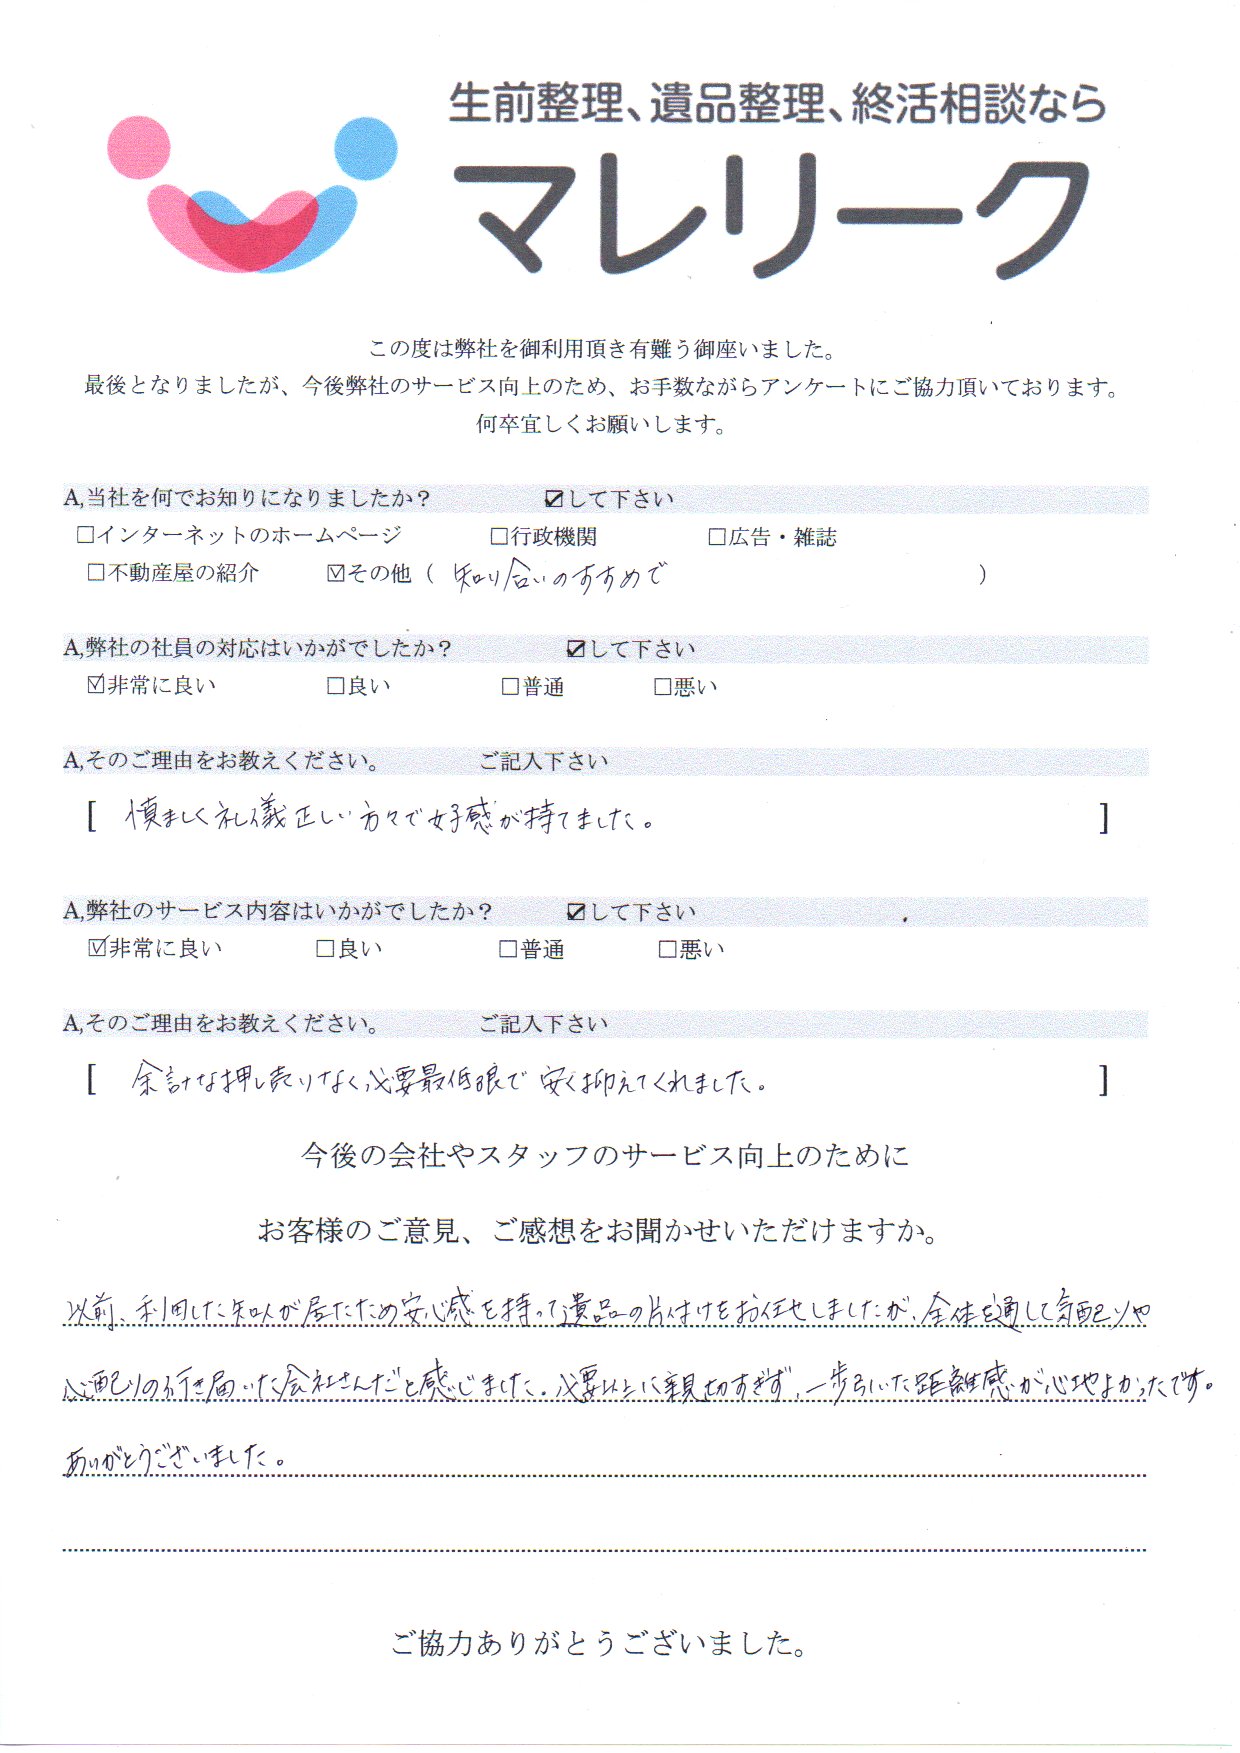 生前整理、遺品整理、終活相談なら
マレリーク
この度は弊社を御利用頂き有難う御座いました。
最後となりましたが、今後弊社のサービス向上のため、お手数ながらアンケートにご協力頂いております。
何卒宜しくお願いします。
A,当社を何でお知りになりましたか? ☑して下さい
□インターネットのホームページ □行政機関 □広告・雑誌
□不動産屋の紹介 ☑その他( 知り合いのすすめで )
A,弊社の社員の対応はいかがでしたか? ☑して下さい
☑非常に良い □良い □普通 □悪い
A,そのご理由をお教えください。 ご記入下さい
[ 慎ましく礼儀正しい方々で好感が持てました。 ]
A,弊社のサービス内容はいかがでしたか? ☑して下さい
☑非常に良い □良い □普通 □悪い
A,そのご理由をお教えください。 ご記入下さい
[ 余計な押し売りなく、必要最低限で安く抑えてくれました。 ]
今後の会社やスタッフのサービス向上のために
お客様のご意見、ご感想をお聞かせいただけますか。
以前、利用した知人が居たため安心感を持って遺品の片付けをお任せしましたが、全体を通して気配りや
心配りの行き届いた会社さんだと感じました。必要以上に親切すぎず、一歩引いた距離感が心地よかったです。
ありがとうございました。
ご協力ありがとうございました。